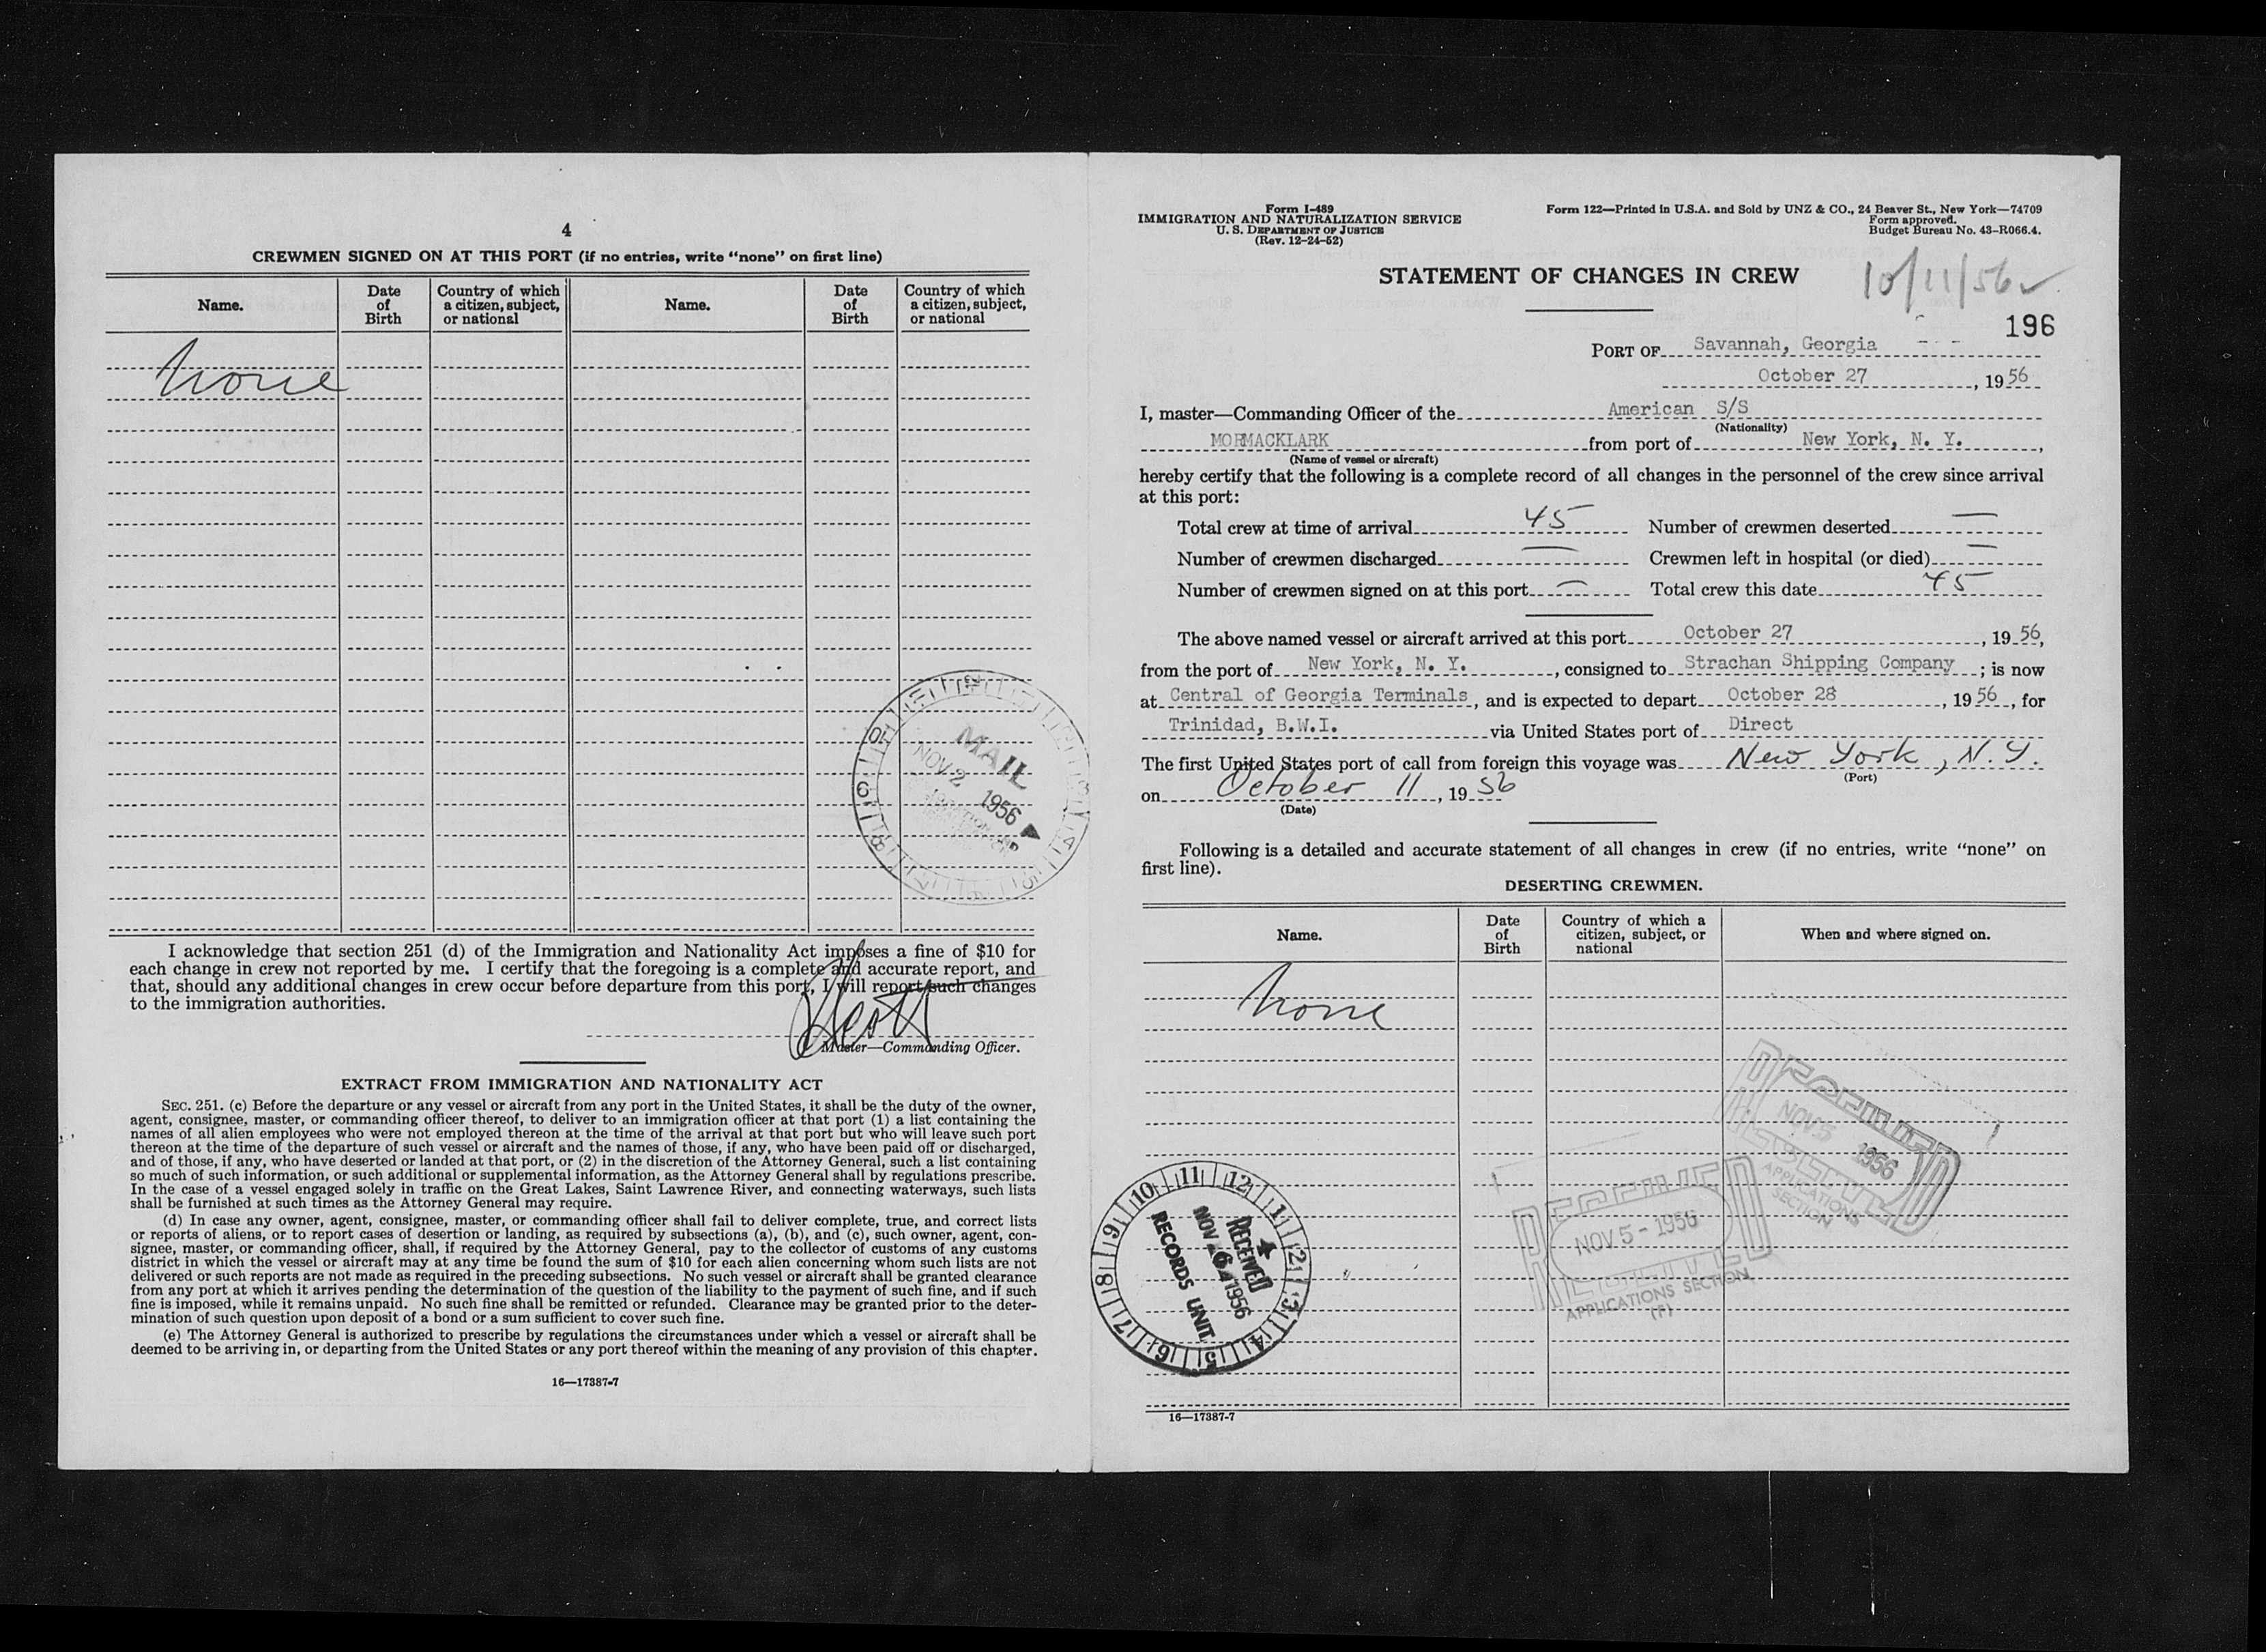 4
CREWMEN SIGNED ON AT THIS PORT (if no entries, write “none” on first line)
Name. Date of Birth Country of which a citizen, subject, or national Name. Date of Birth Country of which a citizen, subject, or national
None
MAIL
NOV 2 1956
I acknowledge that section 251 (d) of the Immigration and Nationality Act imposes a fine of $10 for
each change in crew not reported by me. I certify that the foregoing is a complete and accurate report, and
that, should any additional changes in crew occur before departure from this port, I will report such changes
to the immigration authorities.
Master—Commanding Officer.
EXTRACT FROM IMMIGRATION AND NATIONALITY ACT
SEC. 251. (c) Before the departure or any vessel or aircraft from any port in the United States, it shall be the duty of the owner,
agent, consignee, master, or commanding officer thereof, to deliver to an immigration officer at that port (1) a list containing the
names of all alien employees who were not employed thereon at the time of the arrival at that port but who will leave such port
thereon at the time of the departure of such vessel or aircraft and the names of those, if any, who have been paid off or discharged,
and of those, if any, who have deserted or landed at that port, or (2) in the discretion of the Attorney General, such a list containing
so much of such information, or such additional or supplemental information, as the Attorney General shall by regulations prescribe.
In the case of a vessel engaged solely in traffic on the Great Lakes, Saint Lawrence River, and connecting waterways, such lists
shall be furnished at such times as the Attorney General may require.
(d) In case any owner, agent, consignee, master, or commanding officer shall fail to deliver complete, true, and correct lists
or reports of aliens, or to report cases of desertion or landing, as required by subsections (a), (b), and (c), such owner, agent, con-
signee, master, or commanding officer, shall, if required by the Attorney General, pay to the collector of customs of any customs
district in which the vessel or aircraft may at any time be found the sum of $10 for each alien concerning whom such lists are not
delivered or such reports are not made as required in the preceding subsections. No such vessel or aircraft shall be granted clearance
from any port at which it arrives pending the determination of the question of the liability to the payment of such fine, and if such
fine is imposed, while it remains unpaid. No such fine shall be remitted or refunded. Clearance may be granted prior to the deter-
mination of such question upon deposit of a bond or a sum sufficient to cover such fine.
(e) The Attorney General is authorized to prescribe by regulations the circumstances under which a vessel or aircraft shall be
deemed to be arriving in, or departing from the United States or any port thereof within the meaning of any provision of this chapter.
16—17387-7
Form I-489
IMMIGRATION AND NATURALIZATION SERVICE
U. S. DEPARTMENT OF JUSTICE
(Rev. 12-24-52)
Form 122—Printed in U.S.A. and Sold by UNZ & CO., 24 Beaver St., New York—74709
Form approved.
Budget Bureau No. 43-R066.4.
STATEMENT OF CHANGES IN CREW
10/11/56
196
PORT OF Savannah, Georgia
October 27, 1956
I, master—Commanding Officer of the American S/S
(Nationality)
MORMACKLARK from port of New York, N. Y.,
(Name of vessel or aircraft)
hereby certify that the following is a complete record of all changes in the personnel of the crew since arrival
at this port:
Total crew at time of arrival 45 Number of crewmen deserted —
Number of crewmen discharged — Crewmen left in hospital (or died) —
Number of crewmen signed on at this port — Total crew this date 45
The above named vessel or aircraft arrived at this port October 27, 1956,
from the port of New York, N. Y., consigned to Strachan Shipping Company; is now
at Central of Georgia Terminals, and is expected to depart October 28, 1956, for
Trinidad, B.W.I. via United States port of Direct
The first United States port of call from foreign this voyage was New York, N.Y.
(Port)
on October 11, 1956
(Date)
Following is a detailed and accurate statement of all changes in crew (if no entries, write “none” on
first line).
DESERTING CREWMEN.
Name. Date of Birth Country of which a citizen, subject, or national When and where signed on.
None
NOV 5 1956
APPLICATIONS
SECTION
NOV 5 - 1956
APPLICATIONS SECTION
(F)
10 11 12 1 2 3 4 5 6 7 8 9
RECEIVED
NOV 6 1956
RECORDS UNIT
16—17387-7